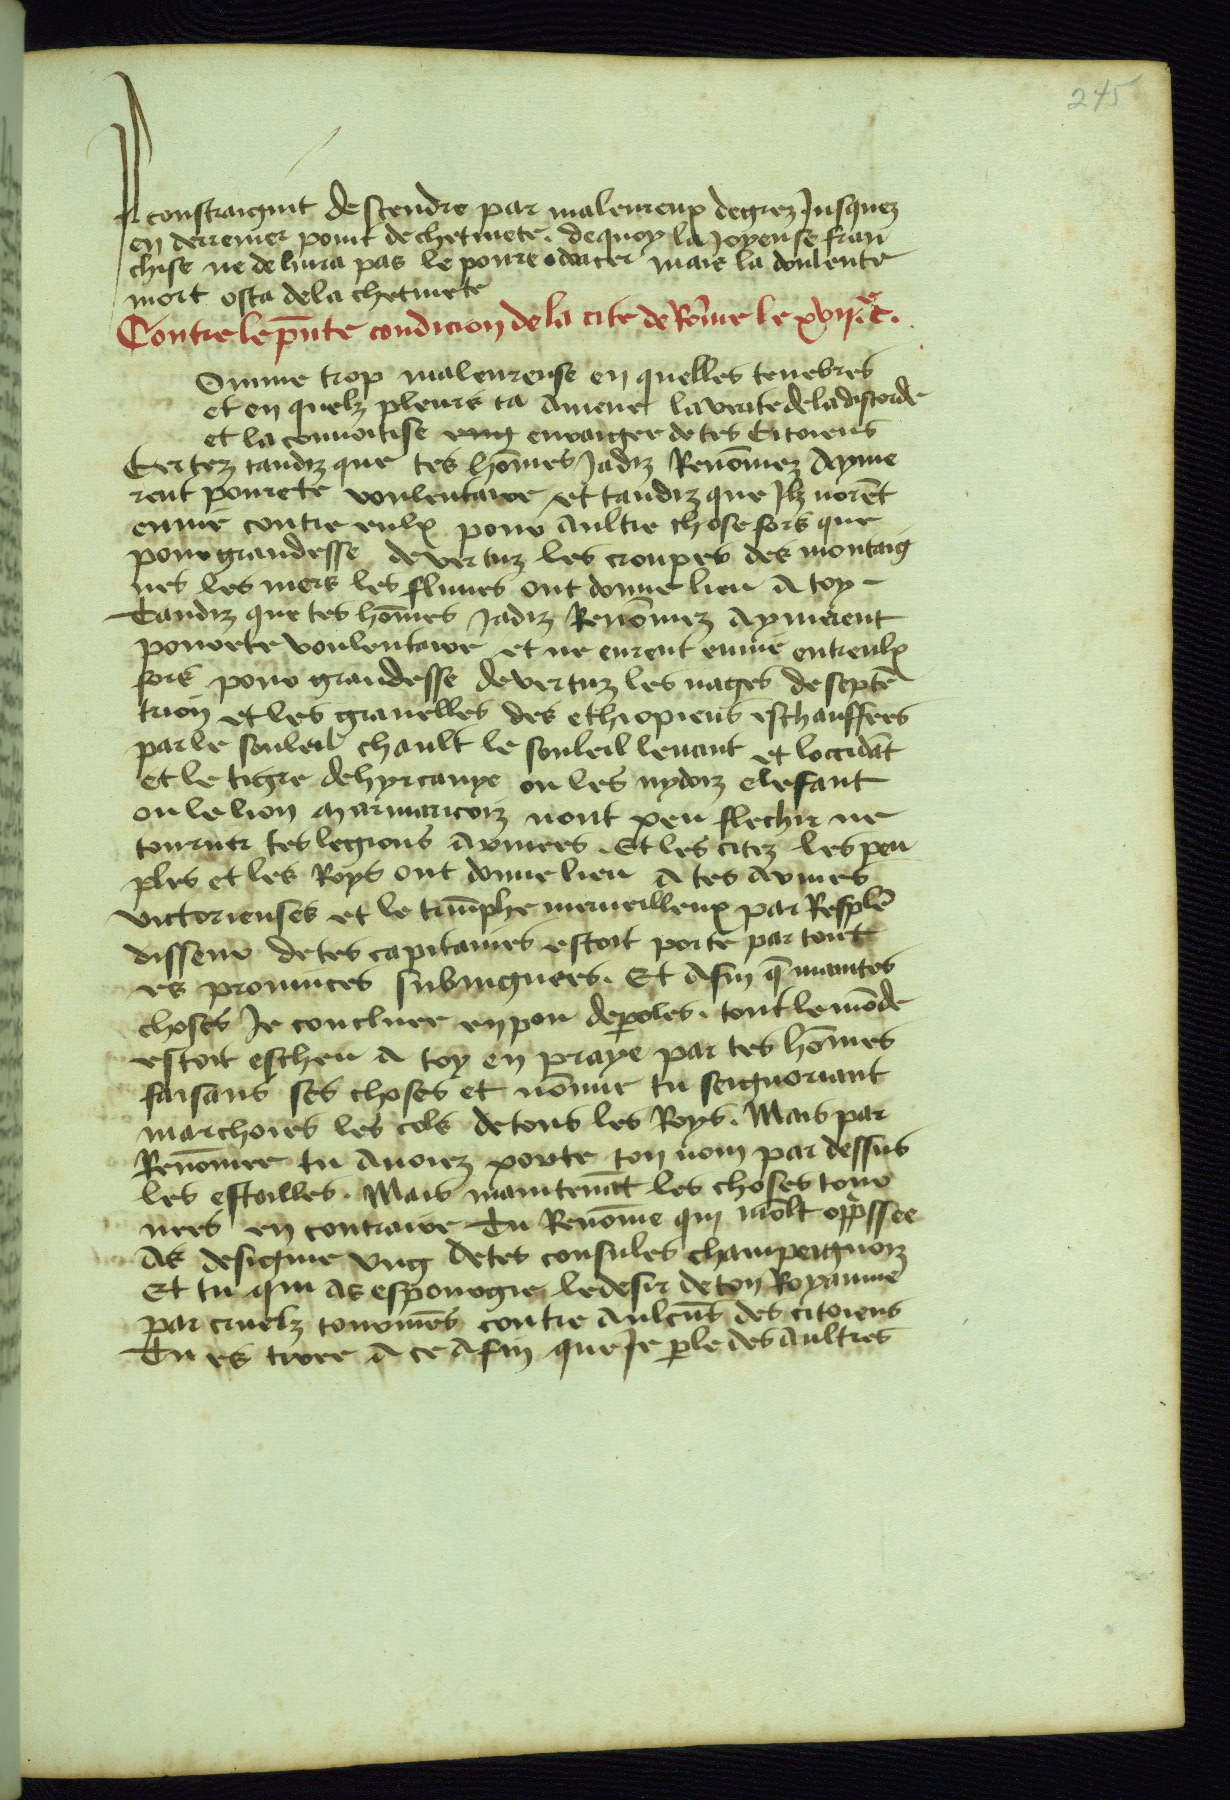 245
Il constraignit descendre par maleureux degrez Jusquez
en derrenier point de chetiuete. de quoy la Joyeuse fran
chise ne deliura pas le poure odoacer mais la doulente
mort osta de la chetiuete
Contre le pñte condicion de la cite de Rõme le xviij.e c.
Omme trop maleureuse en quelles tenebres
et en quelz pleurs ta Amene la verite de la discorde
et la conuoitise enragee de tes Citoiens
Certez tandiz que tes hõmes Jadiz Renõmez Ayme
rent pourete voulentaire et tandiz que Jlz norẽt
enuie contre eulx pour Aultre chose fors que
pour grandesse de vertuz les croupes des montaig
nes les mers les fluues ont donne lieu A toy
Tandiz que tes hõmes Jadiz Renõmez Aymerent
pourete voulentaire et ne eurent enuie entreulx
fors pour grandesse de vertuz les nages de septẽ
trion et les grauelles des ethiopiens eschauffees
par le souleil chault le souleil leuant et loccidẽt
et le tigre de hyrcanye ou les nydoiz elefant
ou le lion Marmaricoiz nont peu flechir ne
tourner tes legions Armees. Et les citez les peu
ples et les Roys ont donne lieu A tes Armes
victorieuses et le triũphe merueilleux par Resplẽ
disseur de tes capitaines estoit porte par tout
es prouinces subiuguees. Et Afin q̃ maintes
choses Je concluee en pou de paroles. tout le mõde
estoit escheu A toy en praye par tes hõmes
faisans ses choses et nõme tu seignoriant
marchoies les cols de tous les Roys. Mais par
Renõmee tu Auoiez porte ton nom par dessus
les estoilles. Mais maintenãt les choses tour
nees en contraire Tu Renõme qui molt opp̃ssee
As designe vng de tes consules champeignoiz
Et tu qui As espouogie le desir de ton Royaume
par cruelz tourmẽs contre Aulcũs des citoiens
Tu es tiree A ce Afin que Je p̱le des Aultres